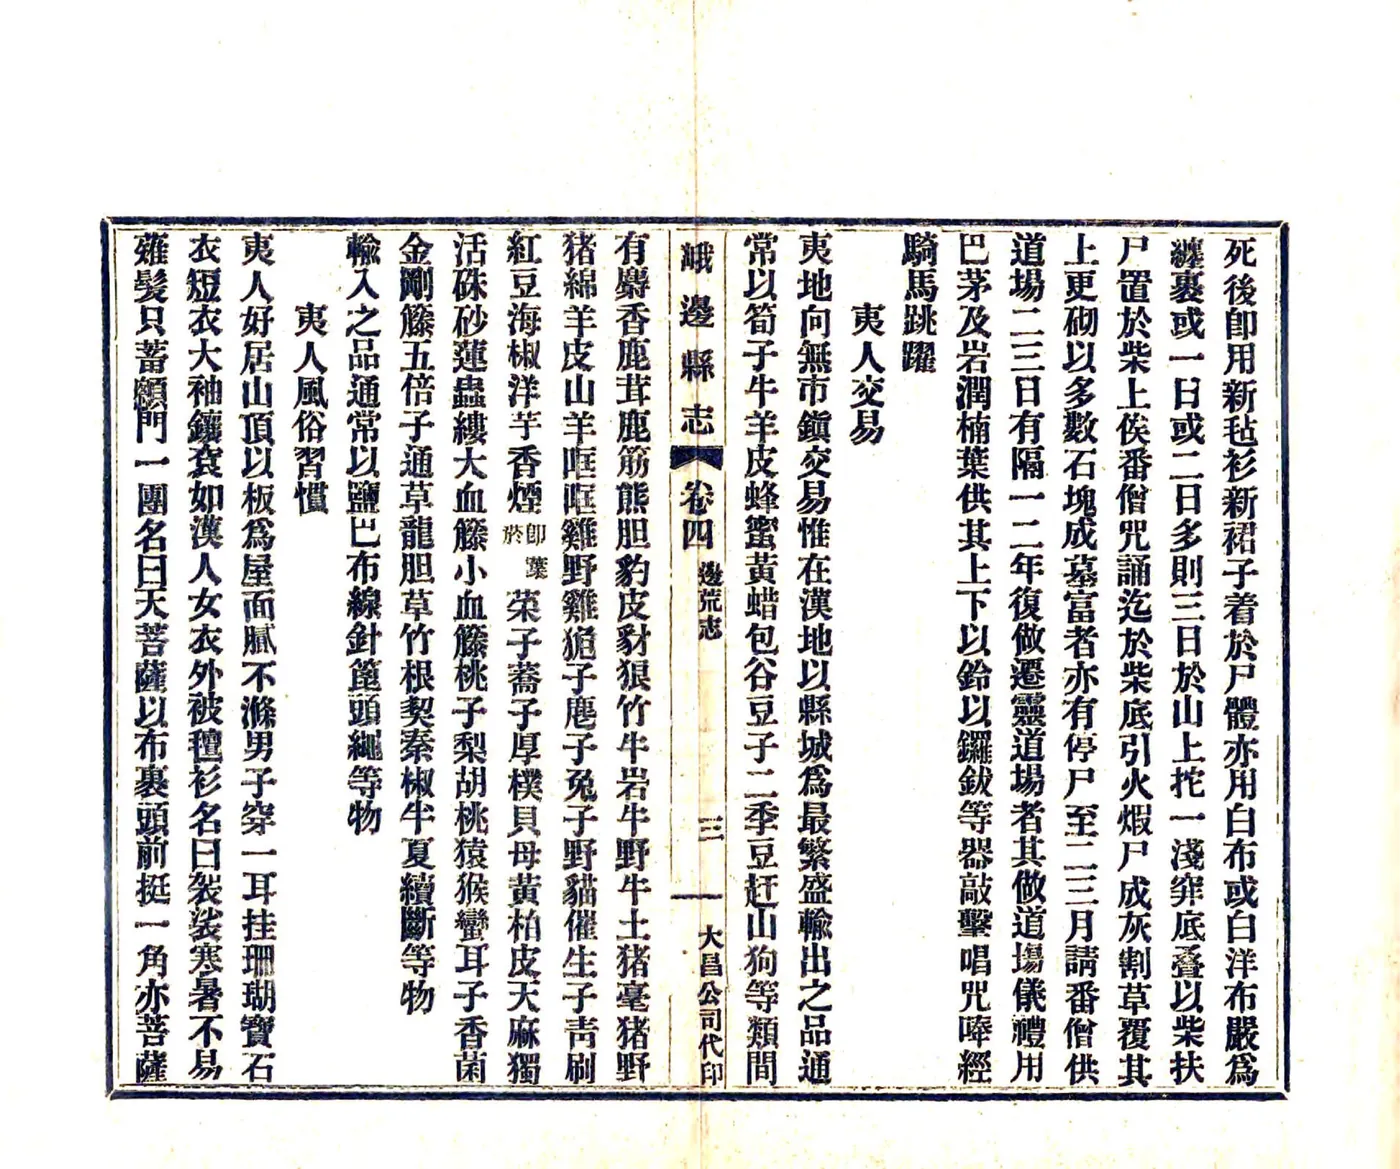 死後卽用新毡衫新裙子着於尸體亦用白布或白洋布嚴爲
纏裹或一日或二日多則三日於山上挖一淺穽底叠以柴扶
尸置於柴上俟番僧咒誦迄於柴底引火煆尸成灰割草覆其
上更砌以多數石塊成墓富者亦有停尸至二三月請番僧供
道場二三日有隔一二年復做遷靈道場者其做道場儀禮用
巴茅及岩潤楠葉供其上下以鈴以鑼鈸等器敲擊唱咒唪經
騎馬跳躍
夷人交易
夷地向無市鎭交易惟在漢地以縣城爲最繁盛輸出之品通
常以筍子牛羊皮蜂蜜黃蜡包谷豆子二季豆赶山狗等類間
峨邊縣志 卷四 邊荒志 三 大昌公司代印
有麝香鹿茸鹿筋熊胆豹皮豺狼竹牛岩牛野牛土猪毫猪野
猪綿羊皮山羊㕭㕭雞野雞猠子麂子兔子野貓催生子靑刷
紅豆海椒洋芋香煙卽葉菸菜子蕎子厚樸貝母黃柏皮天麻獨
活硃砂蓮蟲縷大血籐小血籐桃子梨胡桃猿猴蠻耳子香菌
金剛籐五倍子通草龍胆草竹根契秦椒半夏續斷等物
輸入之品通常以鹽巴布線針篦頭繩等物
夷人風俗習慣
夷人好居山頂以板爲屋面膩不滌男子穿一耳挂珊瑚寶石
衣短衣大袖鑲袞如漢人女衣外被氊衫名曰袈裟寒暑不易
薙髮只蓄顖門一團名曰天菩薩以布裹頭前挺一角亦菩薩